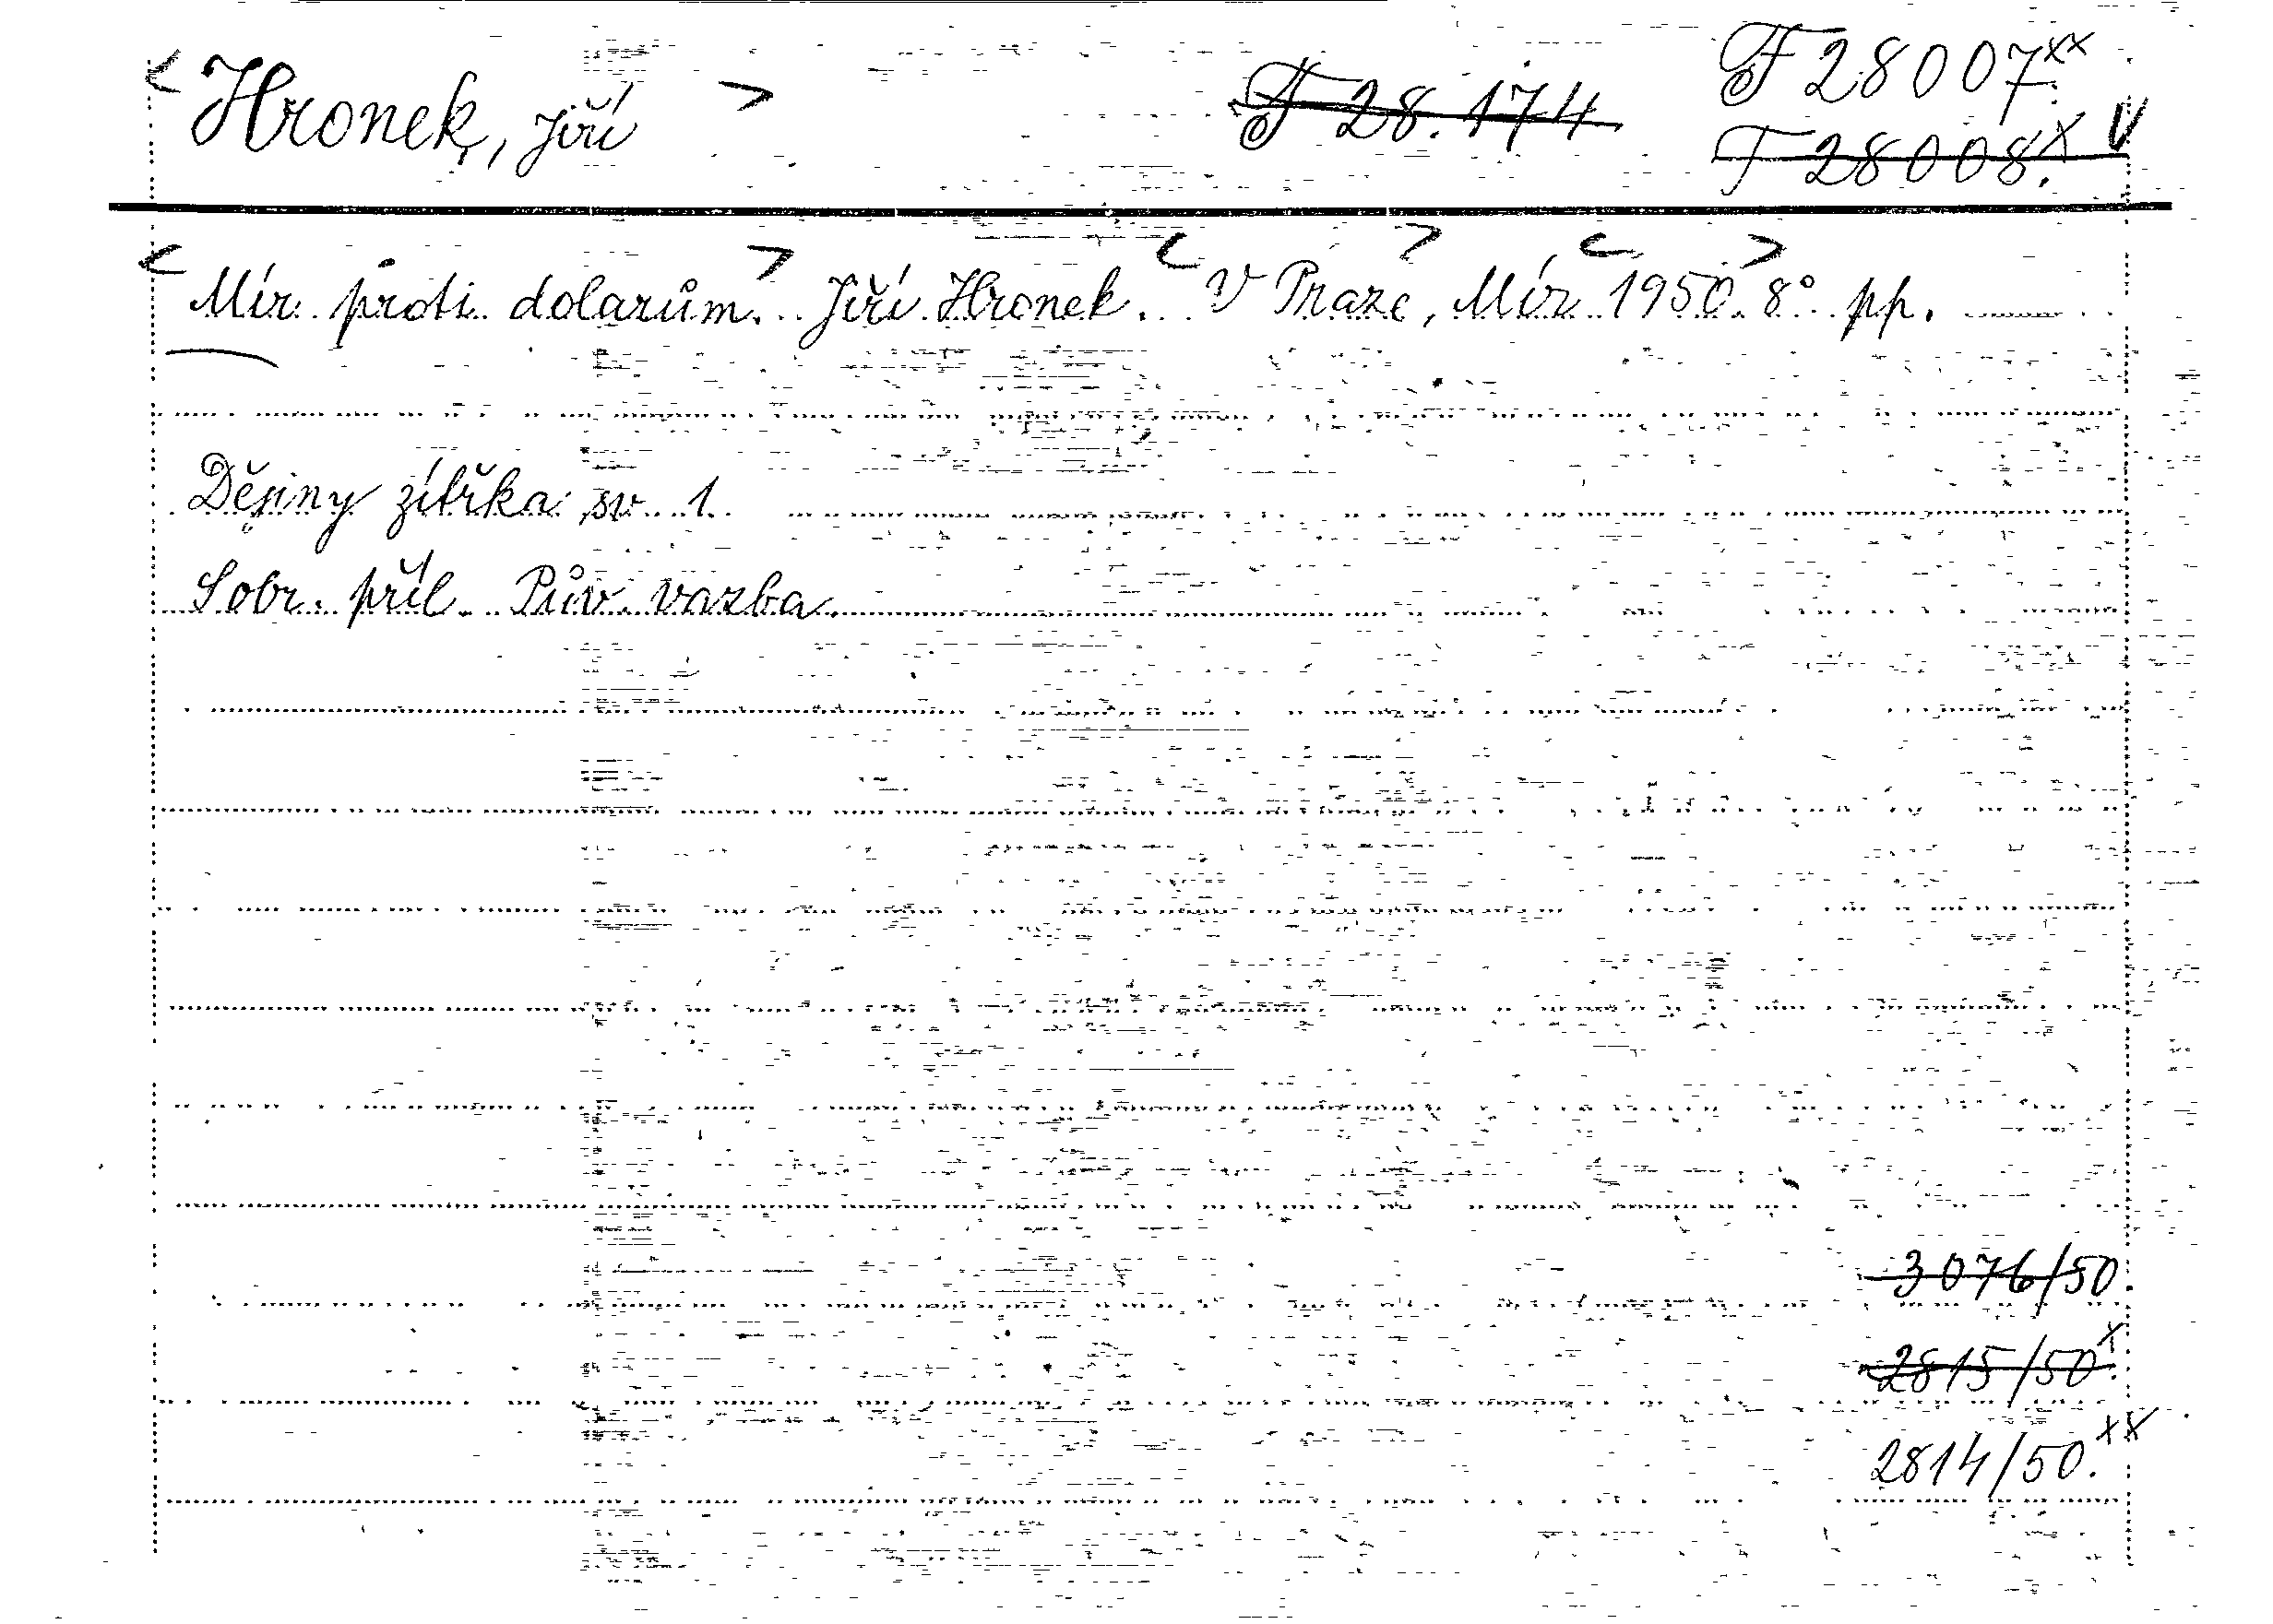 < Hronek, Jiří > F 28.174 F 28007.xx
F 28008.x V
< Mír proti dolarům. > Jiří Hronek. < V Praze, > Mír < 1950. > 8° pp.
Dějiny zítřka sv. 1.
Sobr. příl. Pův. vazba.
3076/50.
2815/50.x
2814/50.xx